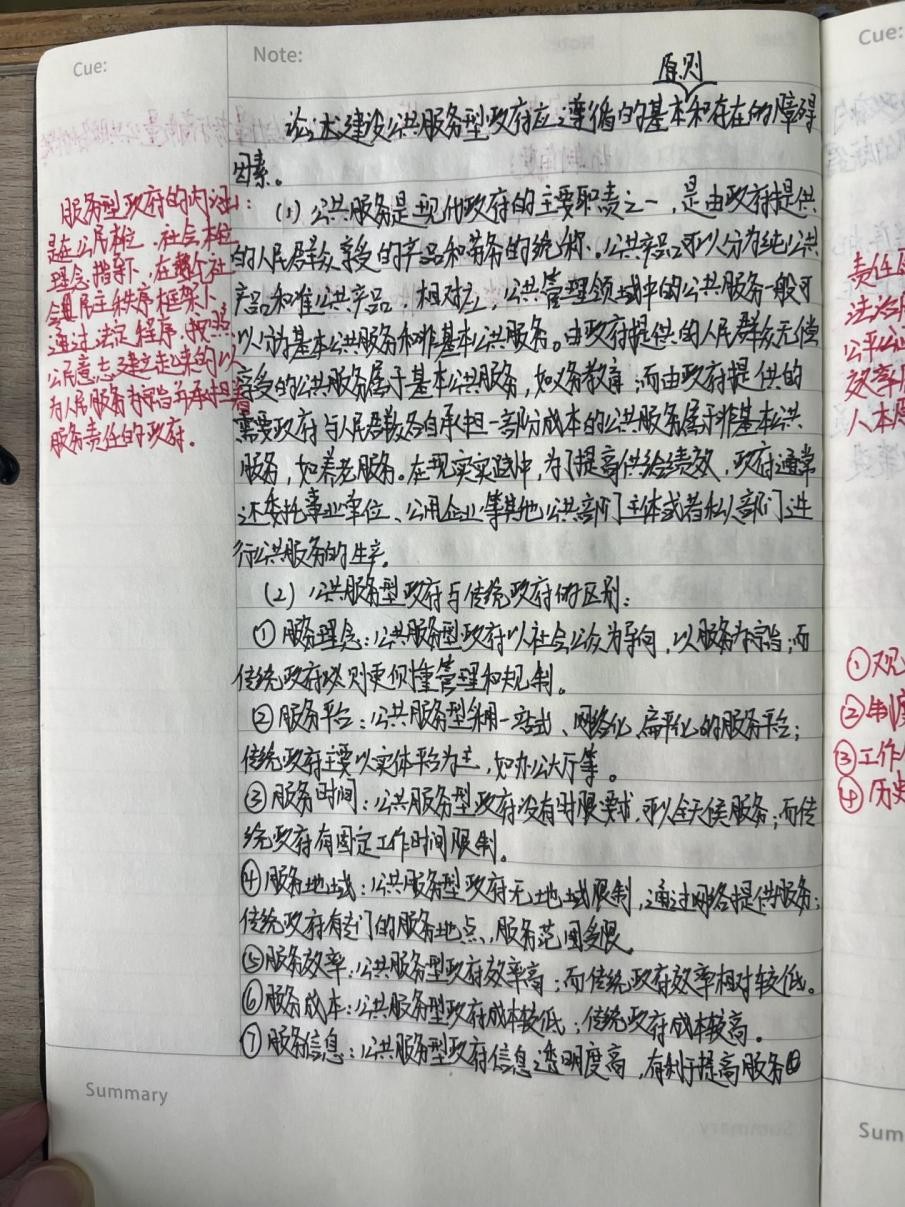 Cue:
Note:
原则
论述建设公共服务型政府应遵循的基本和存在的障碍
因素。
服务型政府的内涵:
是在公民本位、社会本位
理念指导下,在整个社
会民主秩序框架下,
通过法定程序,按照
公民意志建立起来的以
为人民服务为宗旨并承担着
服务责任的政府。
(1)公共服务是现代政府的主要职责之一,是由政府提供
的人民群众享受的产品和劳务的统称。公共产品可以分为纯公共
产品和准公共产品,相对应,公共管理领域中的公共服务一般可
以分为基本公共服务和非基本公共服务。由政府提供的人民群众无偿
享受的公共服务属于基本公共服务,如义务教育;而由政府提供的
需要政府与人民群众各自承担一部份成本的公共服务属于非基本公共
服务,如养老服务。在现实实践中,为了提高供给绩效,政府通常
还委托事业单位、公用企业等其他公共部门主体或者私人部门进
行公共服务的生产。
(2)公共服务型政府与传统政府的区别:
①服务理念:公共服务型政府以社会公众为导向,以服务为宗旨;而
传统政府则更侧重管理和规制。
②服务平台:公共服务型利用一站式、网络化、扁平化的服务平台;
传统政府主要以实体平台为主,如办公大厅等。
③服务时间:公共服务型政府没有时限要求,可以全天候服务;而传
统政府有固定工作时间限制。
④服务地域:公共服务型政府无地域限制,通过网络提供服务;
传统政府有专门的服务地点,服务范围多限。
⑤服务效率:公共服务型政府效率高;而传统政府效率相对较低。
⑥服务成本:公共服务型政府成本较低;传统政府成本较高。
⑦服务信息:公共服务型政府信息透明度高,有利于提高服务
Summary
Cue:
责任
法治
公平公
效率
人本
①观
②制度
③工作
④历史
Sum